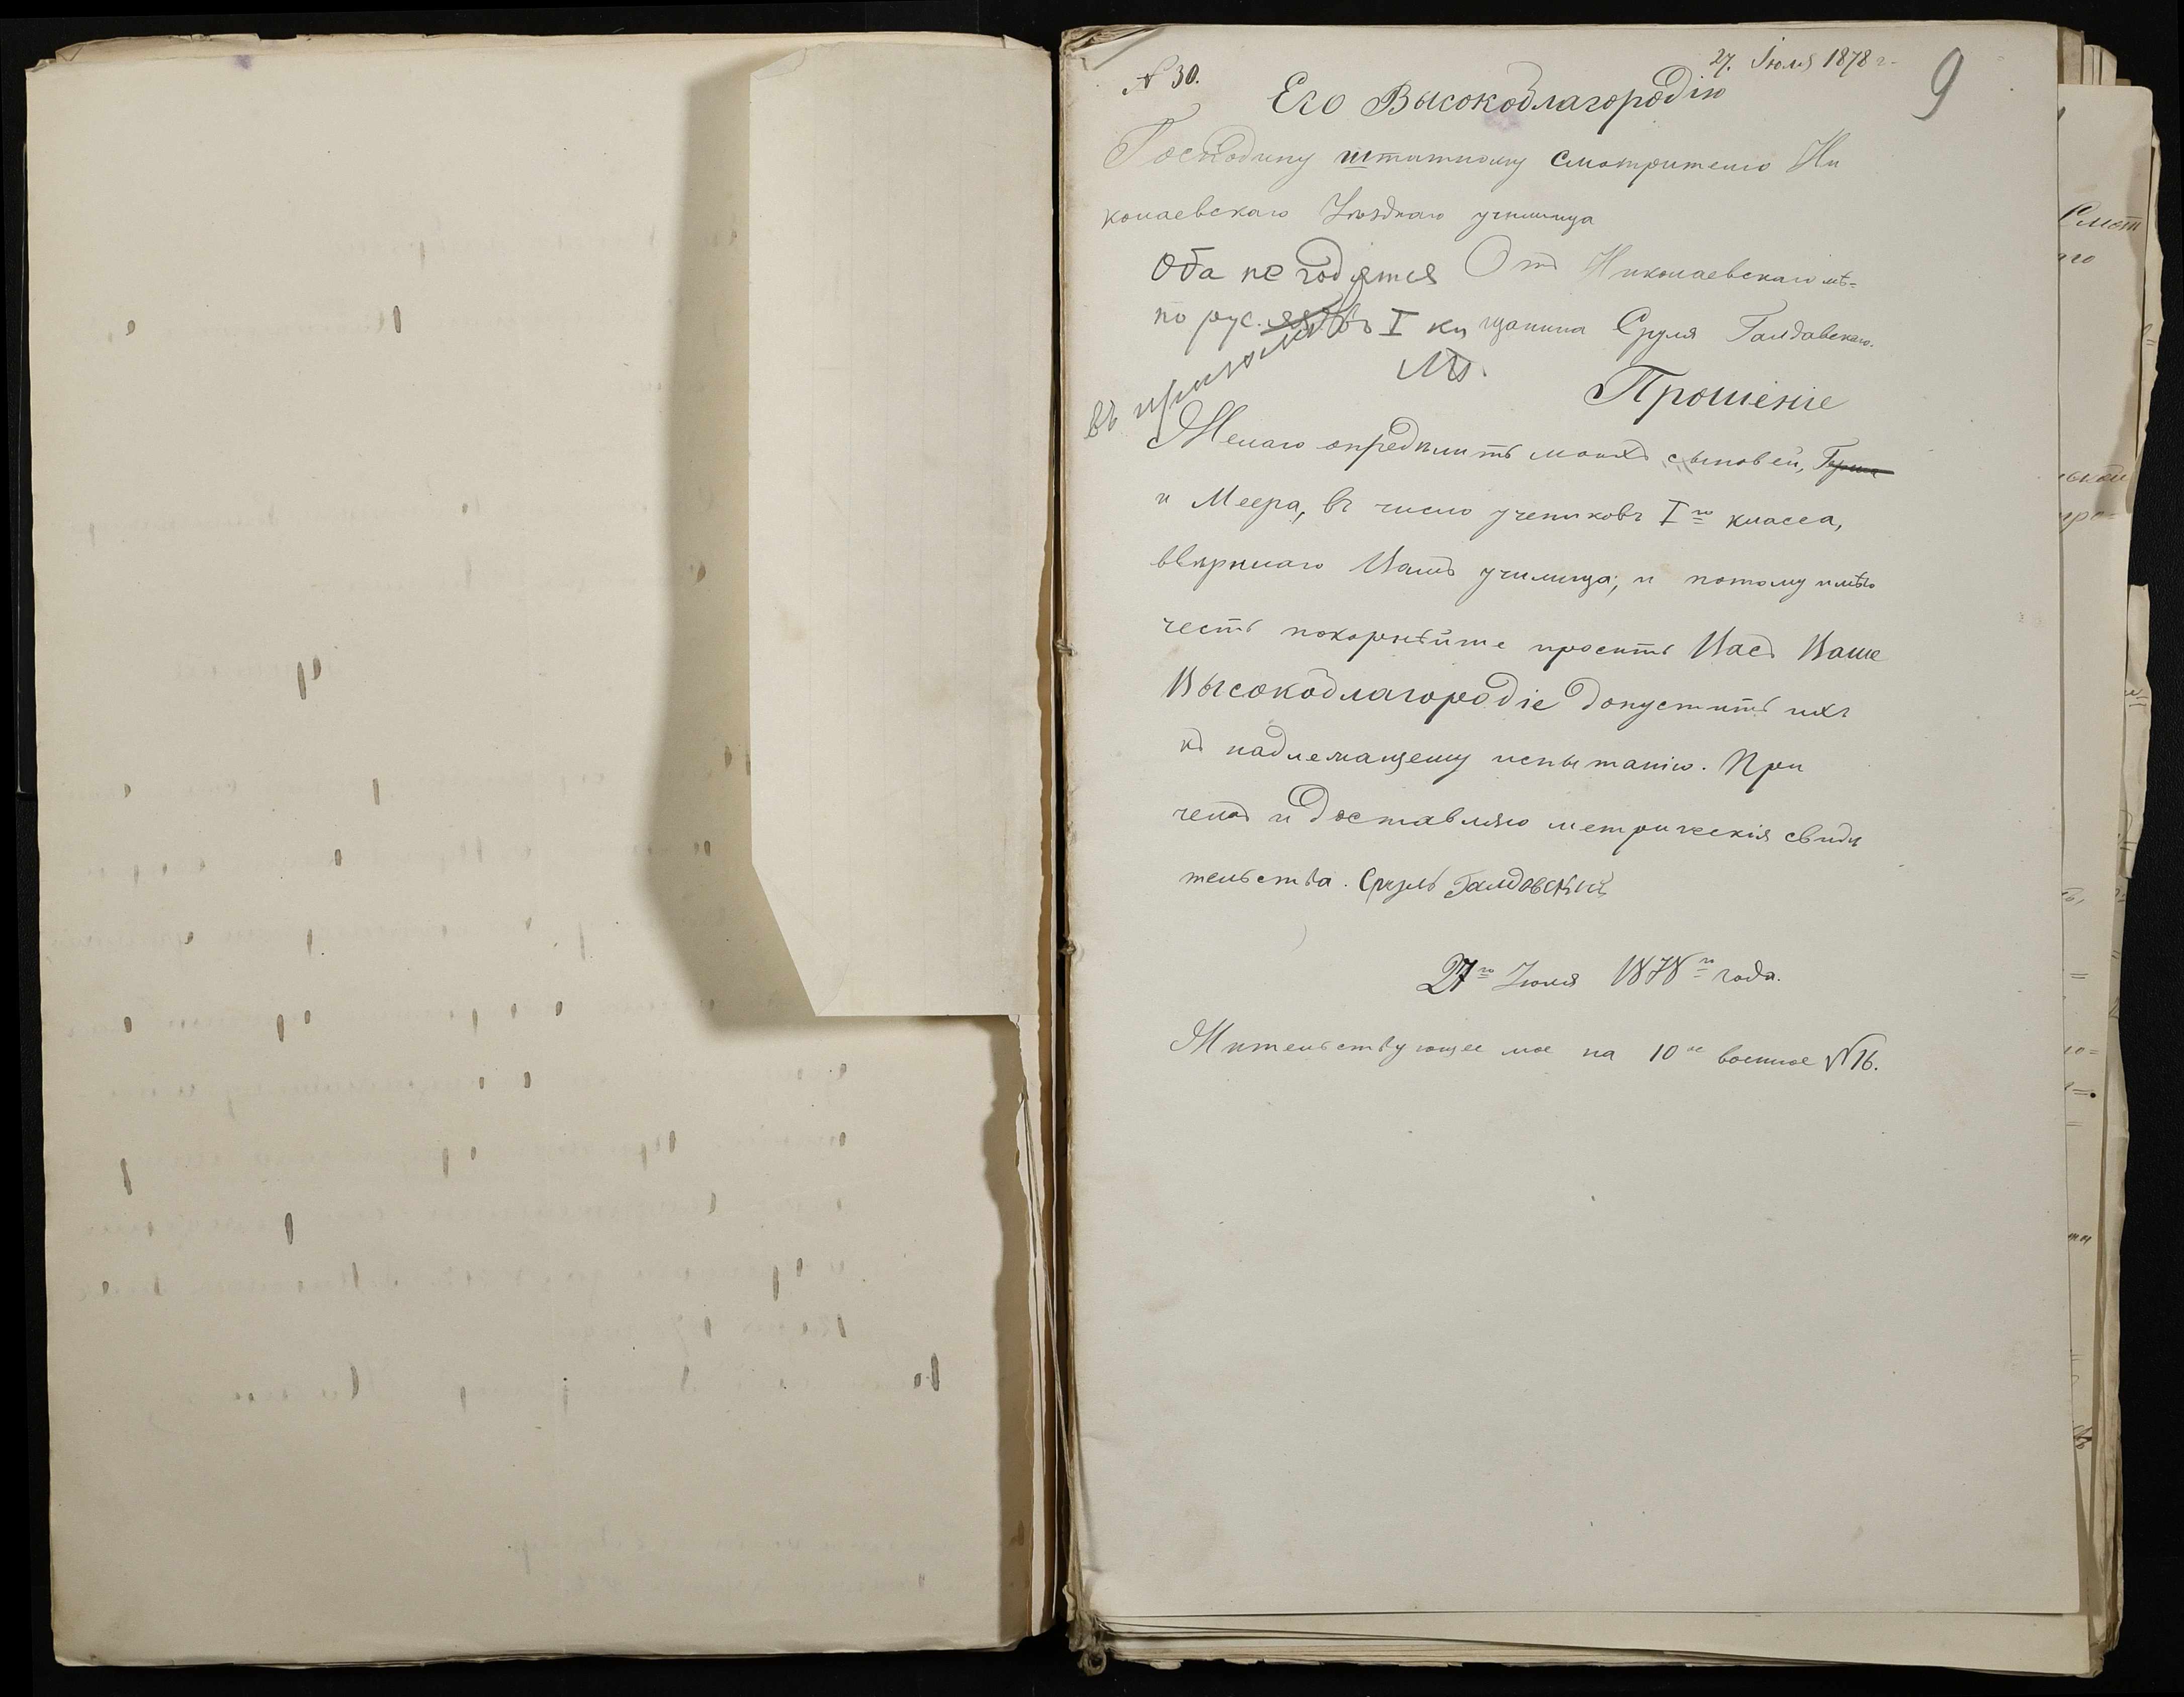 № 30.
27. Іюля 1878 г.
9
Его Высокоблагородію
Господину штатному смотрителю Ни
колаевскаго Уѣзднаго училища
Оба не годятся
по рус. въ I кл.
въ приготов
Отъ Николаевскаго мѣ=
щанина Сруля Галдавскаго.
Прошеніе
Желаю опредѣлить моихъ сыновей, Герша
и Меера, въ число учениковъ Iго класса,
ввѣрннаго Вамъ училища; и потому имѣю
честь покорнѣйше просить Васъ Ваше
Высокоблагородіе допустить ихъ
къ надлежащему испытанію. При
чемъ и доставляю метрическія свидѣ
тельства. Сруль Галдовскій
27го Іюля 1878го года.
Жительствующее мое на 10ое военное №16.